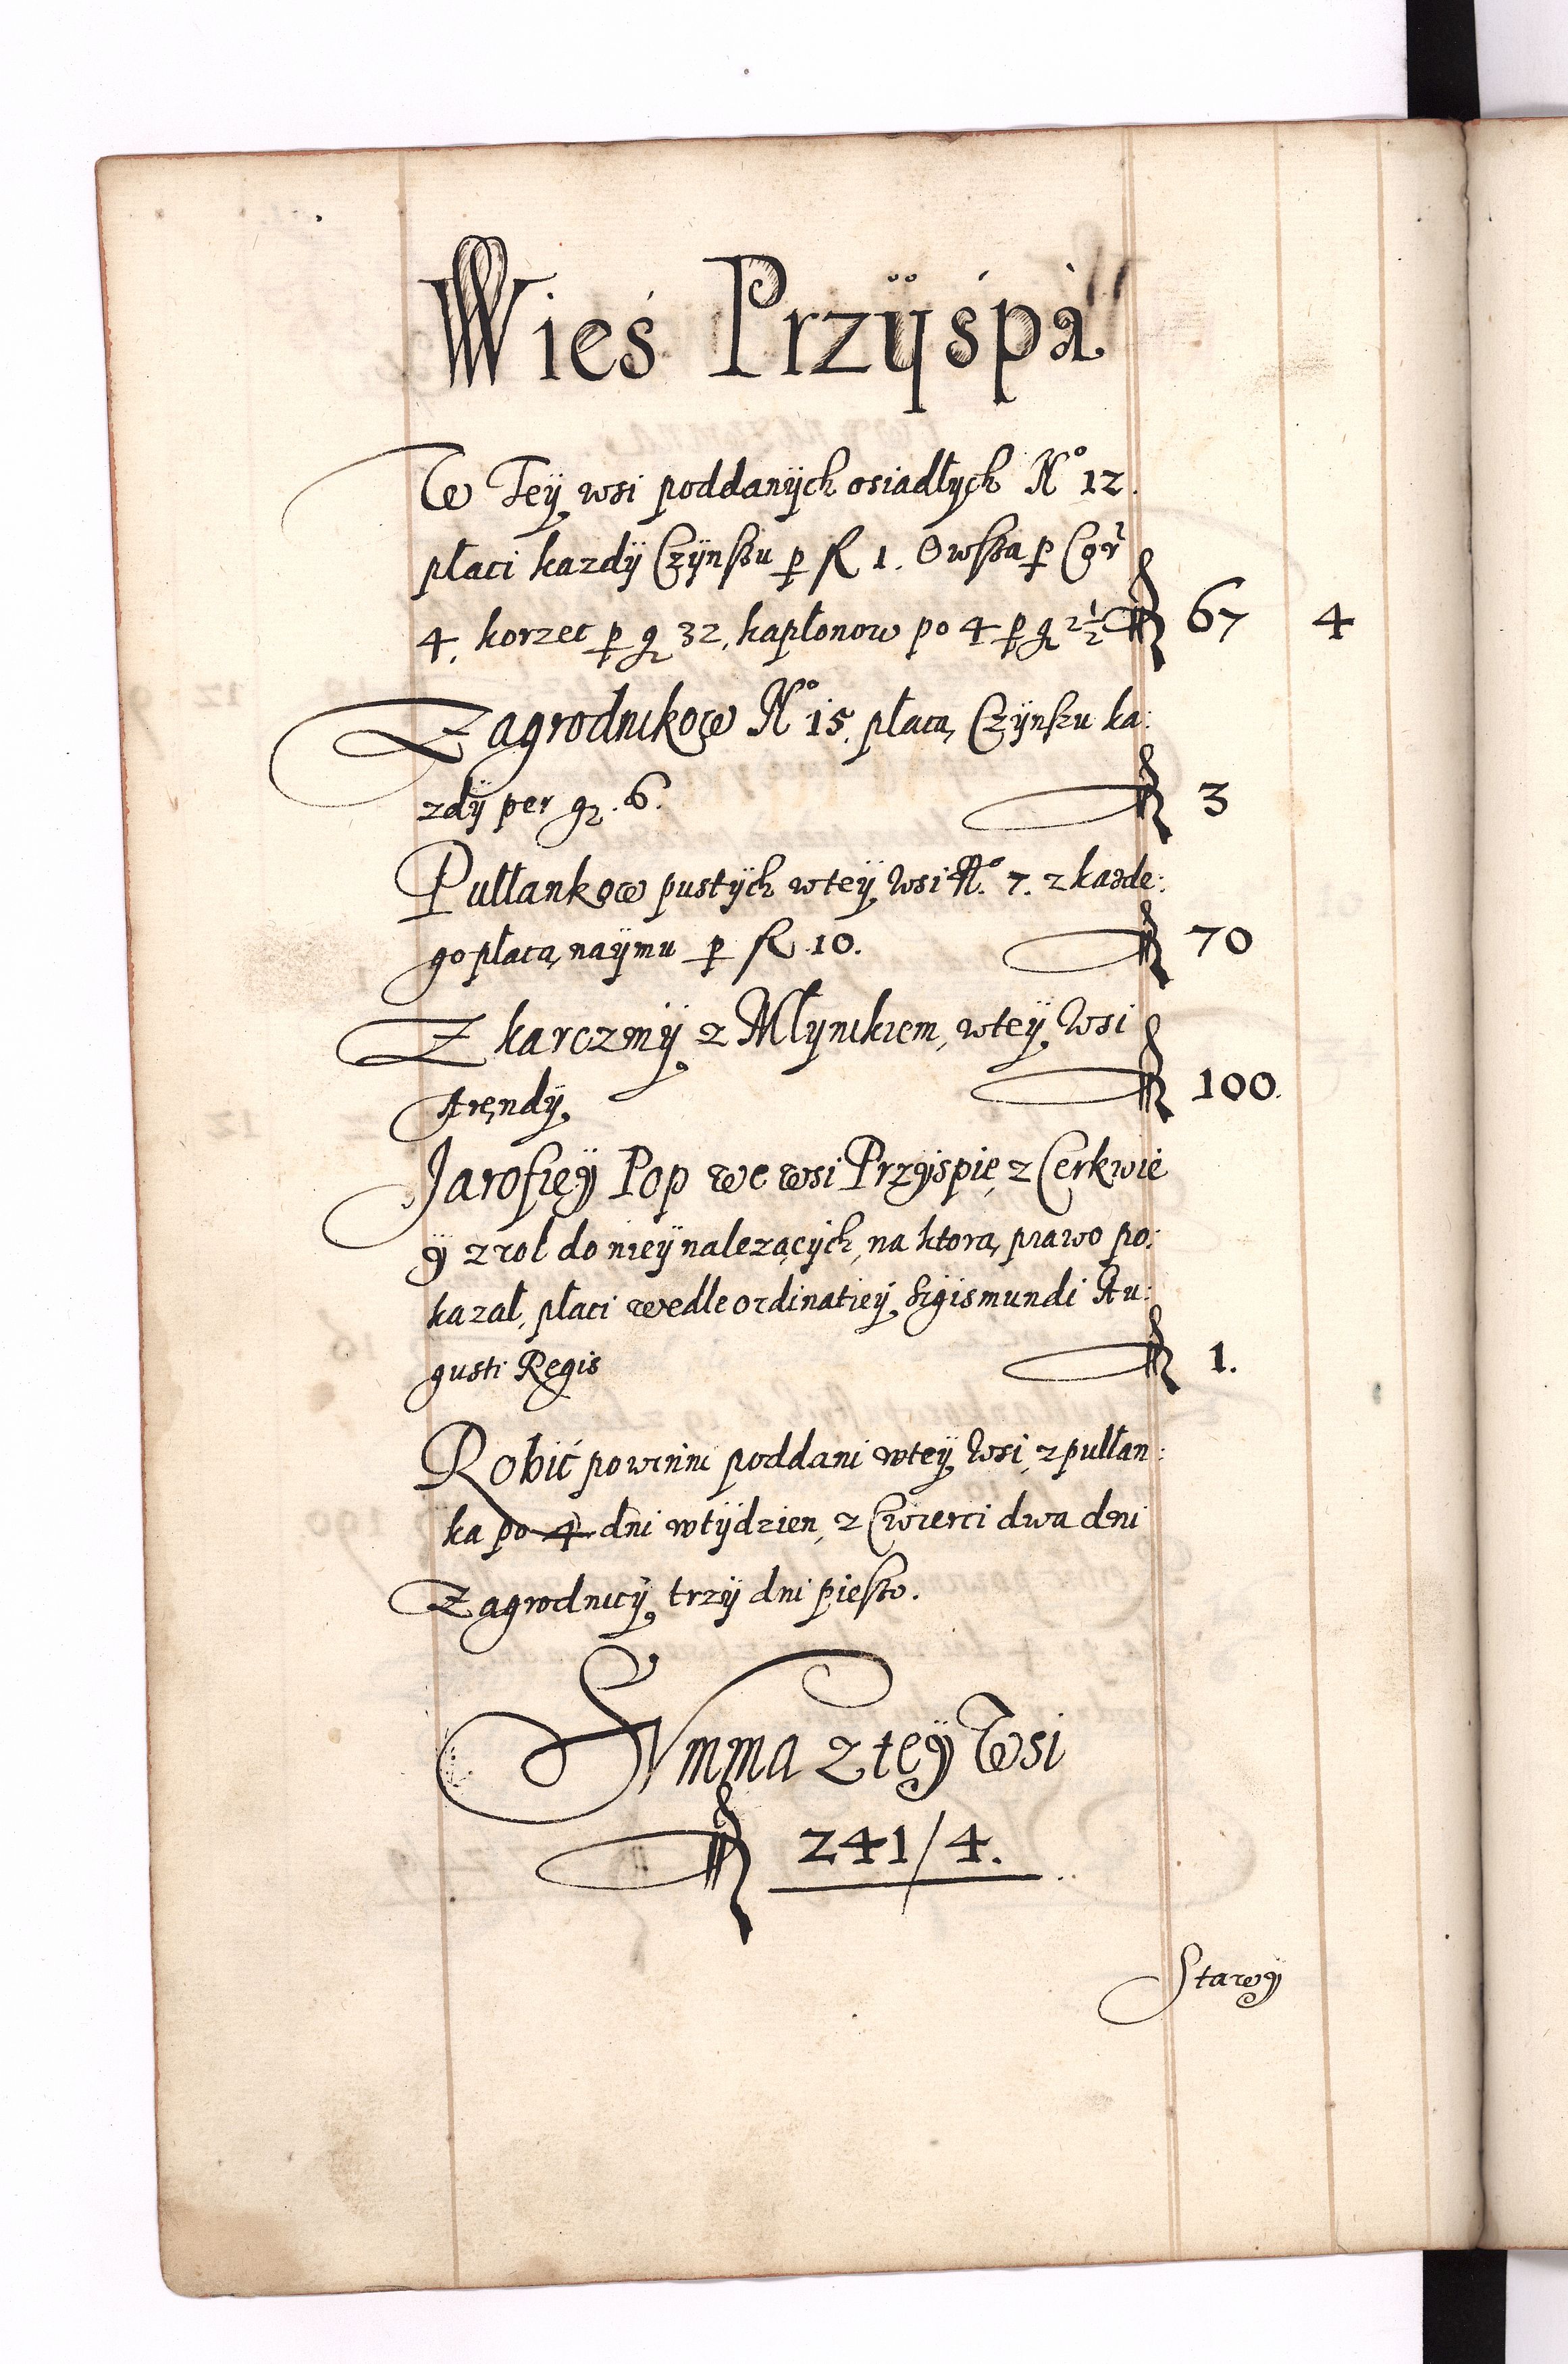 Wieś Przÿśpa
W Teÿ wsi poddanÿch osiadłych N° 12.
płaci kazdÿ Czÿnszu p fl 1. Owssa p Cor
4. korzec p gr 32, kapłonow po 4 p gr 2½ fl 67 4
Zagrodnikow N° 15. płacą Czÿnszu ka:
zdÿ per gr. 6. fl 3
Pułlankow pustÿch wteÿ wsi N° 7. z kazde:
go płacą naÿmu p fl 10. fl 70
Z karczmÿ z Młynikiem, wteÿ wsi
Arendÿ fl 100.
Jarosieÿ Pop we wsi Przÿspie, z Cerkwie
ÿ z rol do nieÿ nalezącÿch, na ktorą prawo po:
kazał, płaci wedle ordinatieÿ Sigismundi Au:
gusti Regis fl 1.
Robić powinni poddani wteÿ wsi, z pułlan:
ka po 4 dni wtÿdzien, z Cwierci dwa dni
Zagrodnicÿ trzÿ dni pieszo.
Summa z teÿ Wsi
fl 241/4.
Stawy